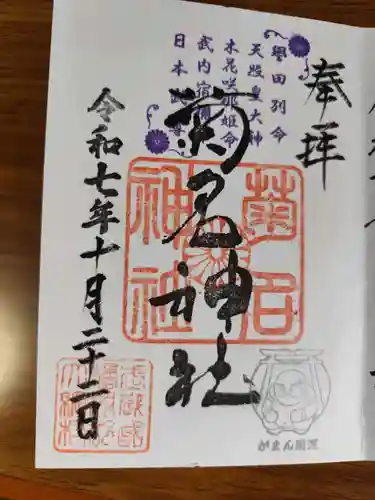 奉拝
譽田別命
天照皇大神
木花咲耶姫命
武内宿禰命
日本武尊
菊名神社
菊名
神社
令和七年十月二十二日
がまん